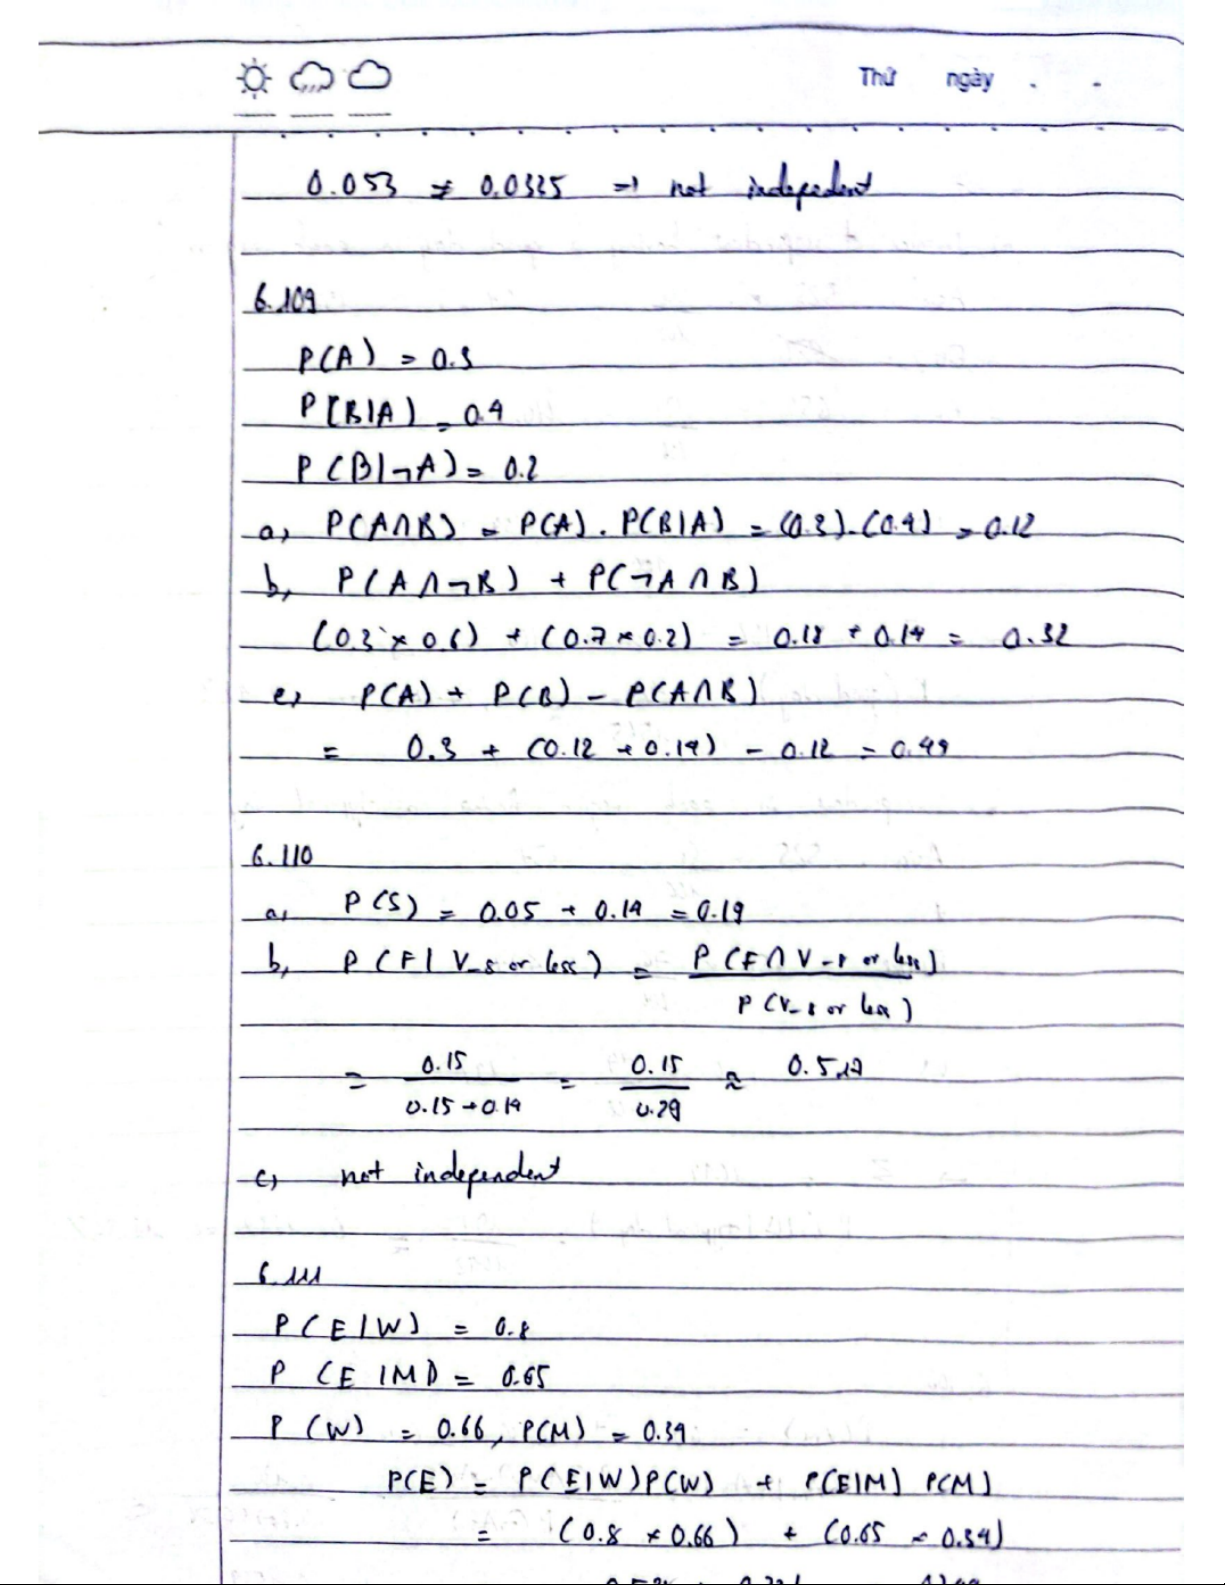 Thứ ngày . .
0.053 ≠ 0.0325 => not independent
6.109
P(A) = 0.3
P(B|A) = 0.4
P(B|¬A) = 0.2
a, P(A∩B) = P(A). P(B|A) = (0.3).(0.4) = 0.12
b, P(A∩¬B) + P(¬A∩B)
(0.3 × 0.6) + (0.7 × 0.2) = 0.18 + 0.14 = 0.32
c, P(A) + P(B) - P(A∩B)
= 0.3 + (0.12 + 0.14) - 0.12 = 0.44
6.110
a, P(S) = 0.05 + 0.14 = 0.19
b, P(F|V_8 or less) = P(F∩V_8 or less)
P(V_8 or less)
= 0.15 = 0.15 ≈ 0.517
0.15+0.14 0.29
c, not independent
6.111
P(E|W) = 0.8
P(E|M) = 0.65
P(W) = 0.66, P(M) = 0.34
P(E) = P(E|W)P(W) + P(E|M) P(M)
= (0.8 × 0.66) + (0.65 × 0.34)